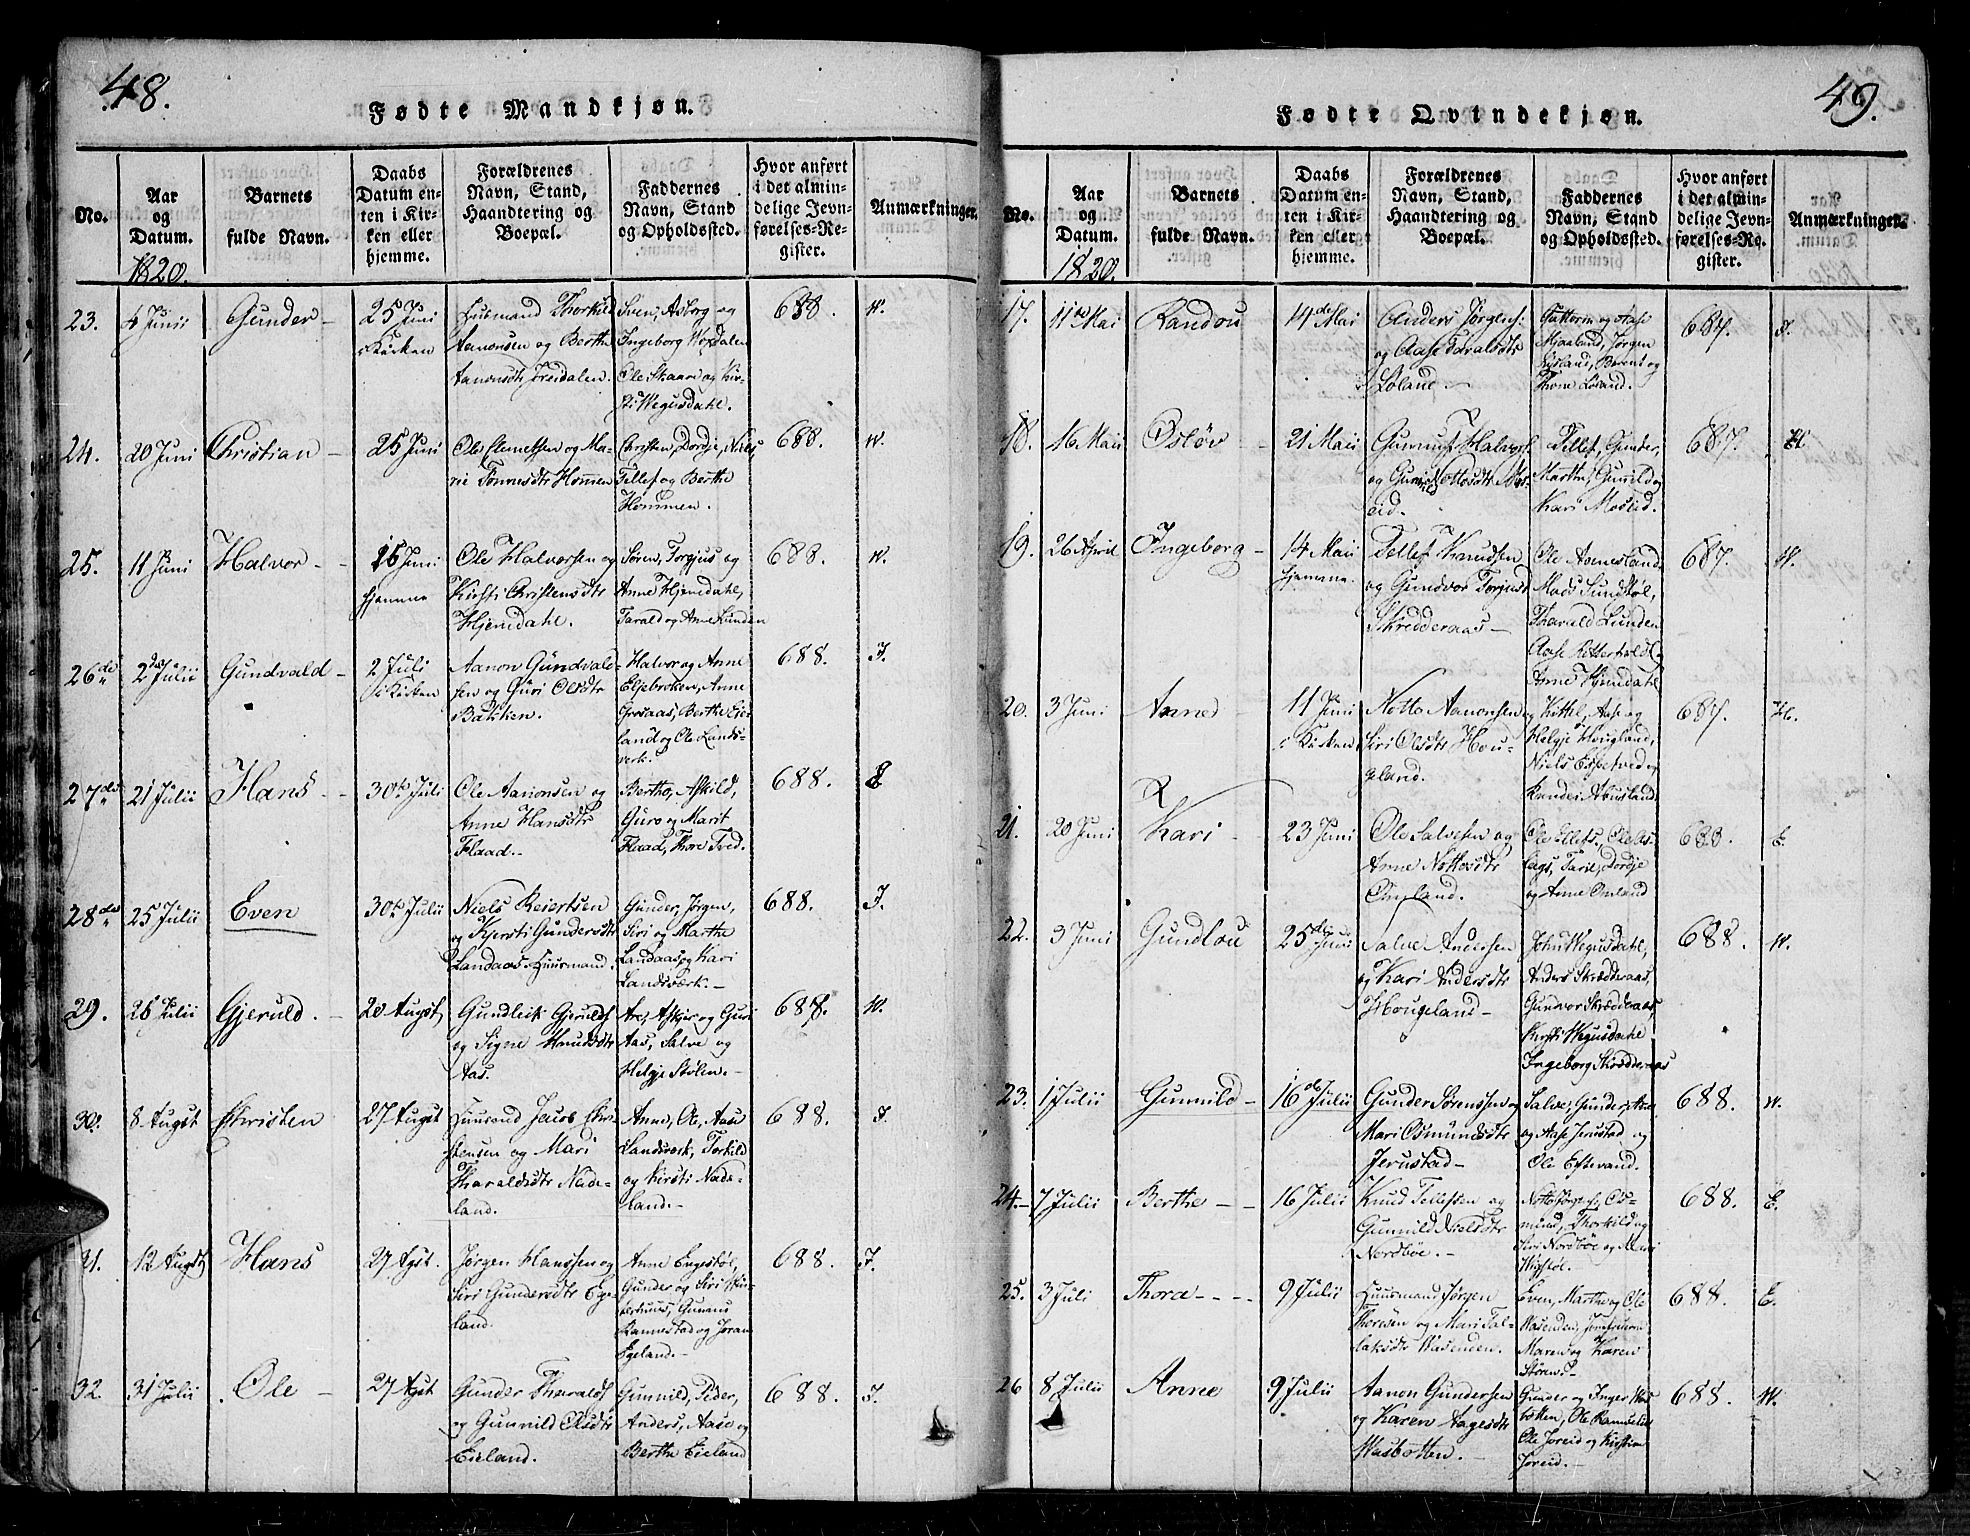 48.
Fødte Mandkjøn.
No.
Aar og Datum.
Barnets fulde Navn.
Daabs Datum enten i Kirken eller hjemme.
Forældrenes Navn, Stand, Haandtering og Boepæl.
Faddernes Navn, Stand og Opholdssted.
Hvor anført i det almindelige Jevnførelses-Register.
Anmærkninger.
1820.
23. 4 Junii Gunder 25 Juni i Kirken
Huusmand Thorkild
Aanonsen og Berthe
Aanonsdtr
Sven, Asborg og
Ingeborg
Ole Skaare og Kir-
sti Wegusdahl.
688. W.
24. 20 Juni Christian 25 Juni
Ole Clemetsen og Ma-
rie Tønnesdtr Hommen
Christen, Dordje, Niels,
Tellef og Berthe
Hommen.
688. W.
25. 11 Juni Halvor 25 Juni hjemme
Ole Halvorsen og
Kirsti Christensdtr
Hjemdahl.
Søren, Torgjus og
Anne Hjemdahl,
Tarald og Anne Lunden
688. W.
26de 2den Julii Gundvald 2 Juli i Kirken
Aanon Gundvald-
sen og Guri Olsdtr
Bakken.
Halvor og Anne
Eljebrokken, Anne
Berthe Eie-
land og Ole Lands-
verk.
688. I.
27de 21 Julii Hans 30te Juli
Ole Aanonsen og
Anne Hansdtr
Flaad.
Berthe, Askild,
Guro og Marit
Flaad, Thore Tved.
688. E
28de 25 Julii Even 30te Julii
Niels Reiertsen
og Kjersti Gundersdtr
Landaas Huusmand.
Gunder, Jørgen,
Siri og Marthe
Landaas og Kari
Landsværk.
688. I.
29. 26 Julii Gjeruld. 20 Augst
Gundleik Gjerulds
og Signe Knudsdtr
Aas.
Are, Askjer og Guri
Aas, Salve og
Helje Stølen.
687. W.
30. 8 Augst Christen 27 Augst
Huusmd Jacob Chri-
stensen og Mari
Tharaldsdtr Nade-
land.
Anne, Ole, Aase
Landsverk, Torkild
og Kirsti Nade-
land.
688. I.
31. 12 Augst Hans 27 Agst.
Jørgen Hanssen og
Siri Gundersdtr Ege-
land.
Anne Engestøl,
Gunder og Siri
Gunnus
Rannestad og Joran
Egeland.
688. I.
32. 31 Julii Ole 27 Agst
Gunder Tharalds
og Gunnild Olsdtr
Eieland.
Gunnild, Peder,
Anders, Aase og
Berthe Eieland
688. I.
49.
Fødte Qvindekjøn.
No.
Aar og Datum.
Barnets fulde Navn.
Daabs Datum enten i Kirken eller hjemme.
Forældrenes Navn, Stand, Haandtering og Boepæl.
Faddernes Navn, Stand og Opholdssted.
Hvor anført i det almindelige Jevnførelses-Register.
Anmærkninger.
1820.
17. 11te Mai Randou 14de Mai
Anders Jørgens:
og Aase Taraldsdtr
Løland.
og Aase
Mjaaland, Jørgen
Lysland, Berent og
Thone Løland.
687. I.
18. 16 Maii Østøv 21 Maii
Gunnuf Halvors
og Gunild Nottosdtr Mos-
eid.
Tellef, Gunder,
Marthe, Gunild og
Kari Moseid.
687. H.
19. 26 April Ingeborg 14 Maii hjemme
Tellef Knudsen
og Gundvor Torgiusdtr
Skreddernaas
Ole Avnesland
Mads Sundstøl,
Tharald Lunden
Aase
Anne Hjemdahl
687. W.
20. 3 Juni Anne 11 Juni i Kirken
Notto Aanonsen og
Siri Olsdtr Hou-
geland.
Kittel, Aase og
Helgje Hougland,
Niels Espetved og
687. H.
21. 20 Juni Kari 23 Juni
Ole Salvesen og
Anne Nottosdtr
Omland.
Ole Ellefs., Ole As-
laqs, Taril, Dordje
og Anne Omland
688. E.
22. 3 Juni Gundlou 25de Juni
Salve Andersen
og Kari Andersdtr
Hougeland
John Wegusdahl,
Anders Skreddernaas,
Gundvor Skreddernaas,
Kirsti Wegusdahl
Ingeborg Skreddernaas
688. W.
23. 1 Julii Gunnild 16de Julii
Gunder Sørenssen og
Mari Osmundsdtr
Jerustad
Salve, Gunder, Are
og Aase Jerustad og
Ole Eftevand.
688. W.
24. 7 Julii Berthe 16 Julii
Knud Tellefsen og
Gunnild
Nordbøe.
Notto Jørgens, Os-
mund, Thorkild og
Siri Nordbøe og Mari
688. E.
25. 3 Juli Thore 9 Julii
Huusmand Jørgen
Thoresen og Mari Tal-
laksdtr Wasenden.
Even, Marthe og Ole
Wasenden,
Maren og Karen
Størens
688. E.
26 8 Julii Anne 9 Julii
Aanon Gundersen
og Karen Aagesdtr
Wasbotten.
Gunder og Inger Was-
botten, Ole
Ole Joreid og Kirsten
Joreid.
688. W.